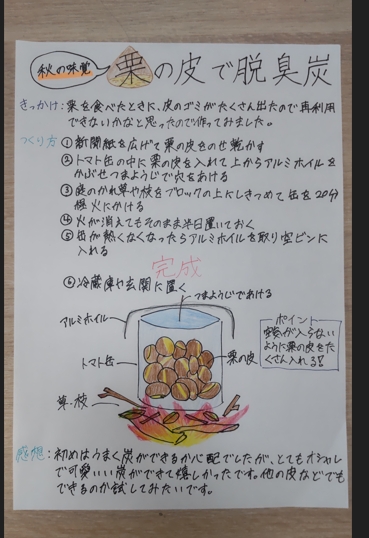 秋の味覚
栗の皮で脱臭炭
きっかけ：栗を食べたときに、皮のゴミがたくさん出たので再利用
できないかなと思ったので作ってみました。
つくり方 ①新聞紙を広げて栗の皮をのせ乾かす
②トマト缶の中に栗の皮を入れて上からアルミホイルを
かぶせつまようじで穴をあける
③庭のかれ草や枝をブロックの上にしきつめて缶を20分
程火にかける
④火が消えてもそのまま半日置いておく
⑤缶が熱くなくなったらアルミホイルを取り空ビンに
入れる
完成
⑥冷蔵庫や玄関に置く
つまようじであける
アルミホイル
トマト缶
栗の皮
草・枝
ポイント
空気が入らない
ように栗の皮をた
くさん入れる!!
感想：初めはうまく炭ができるか心配でしたが、とてもオシャレ
で可愛いい炭ができて嬉しかったです。他の皮などでも
できるのか試してみたいです。